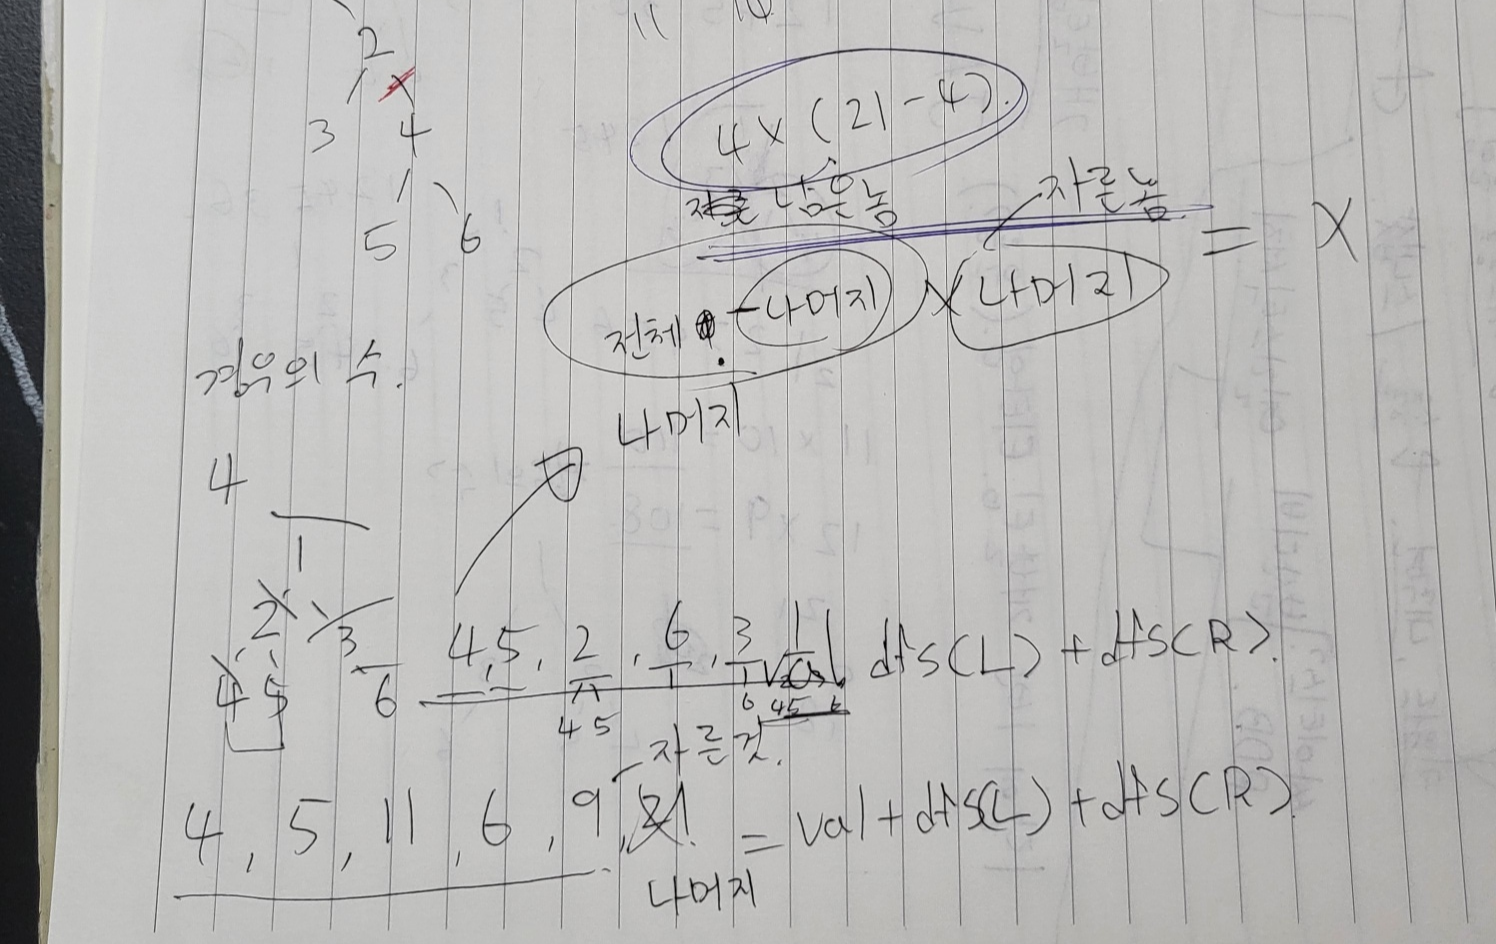 2
3 4
5 6
11 10
4 x (21-4).
남은놈
자른놈
전체 - 나머지 x 나머지 = X
나머지
경우의 수.
4
1
2 3
4 5 6
4, 5, 2, 6, 3, 1 dfs(L) + dfs(R).
4 5 6 45 6
자른것.
4, 5, 11, 6, 9, 21. = val + dfs(L) + dfs(R).
나머지